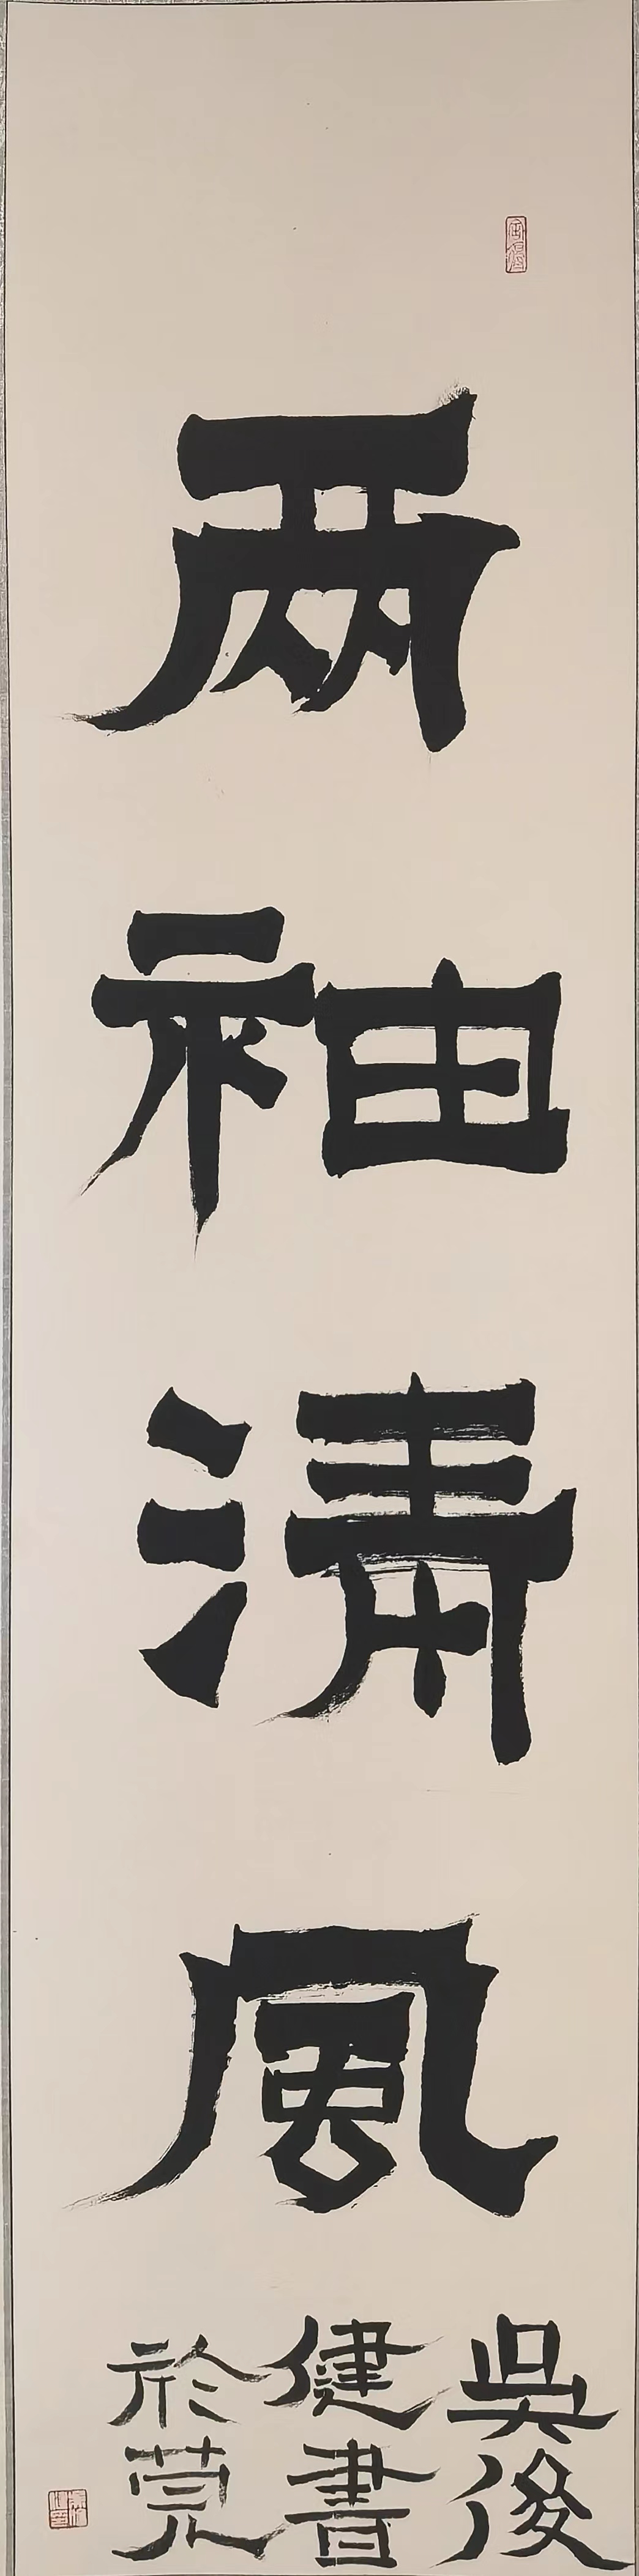 两袖清風
吳俊
健書
於莞